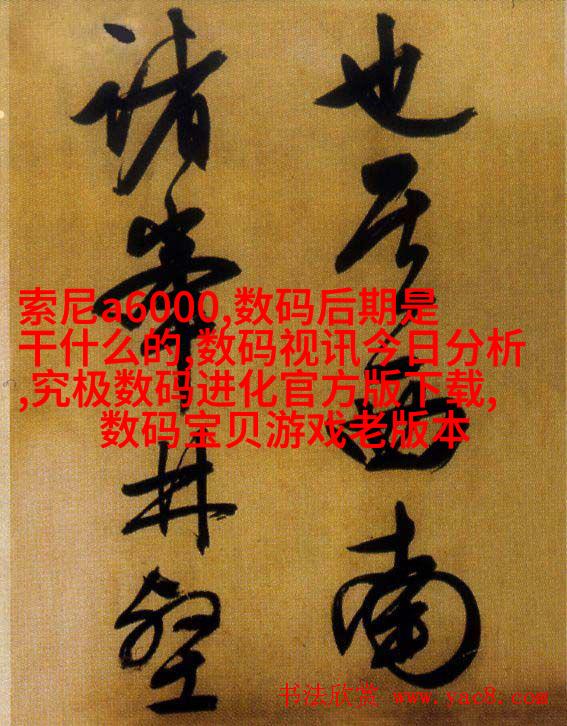 也其西南
諸峯林壑
索尼a6000,数码后期是
干什么的,数码视讯今日分析
,究极数码进化官方版下载,
数码宝贝游戏老版本
书法欣赏 www.yac8.com